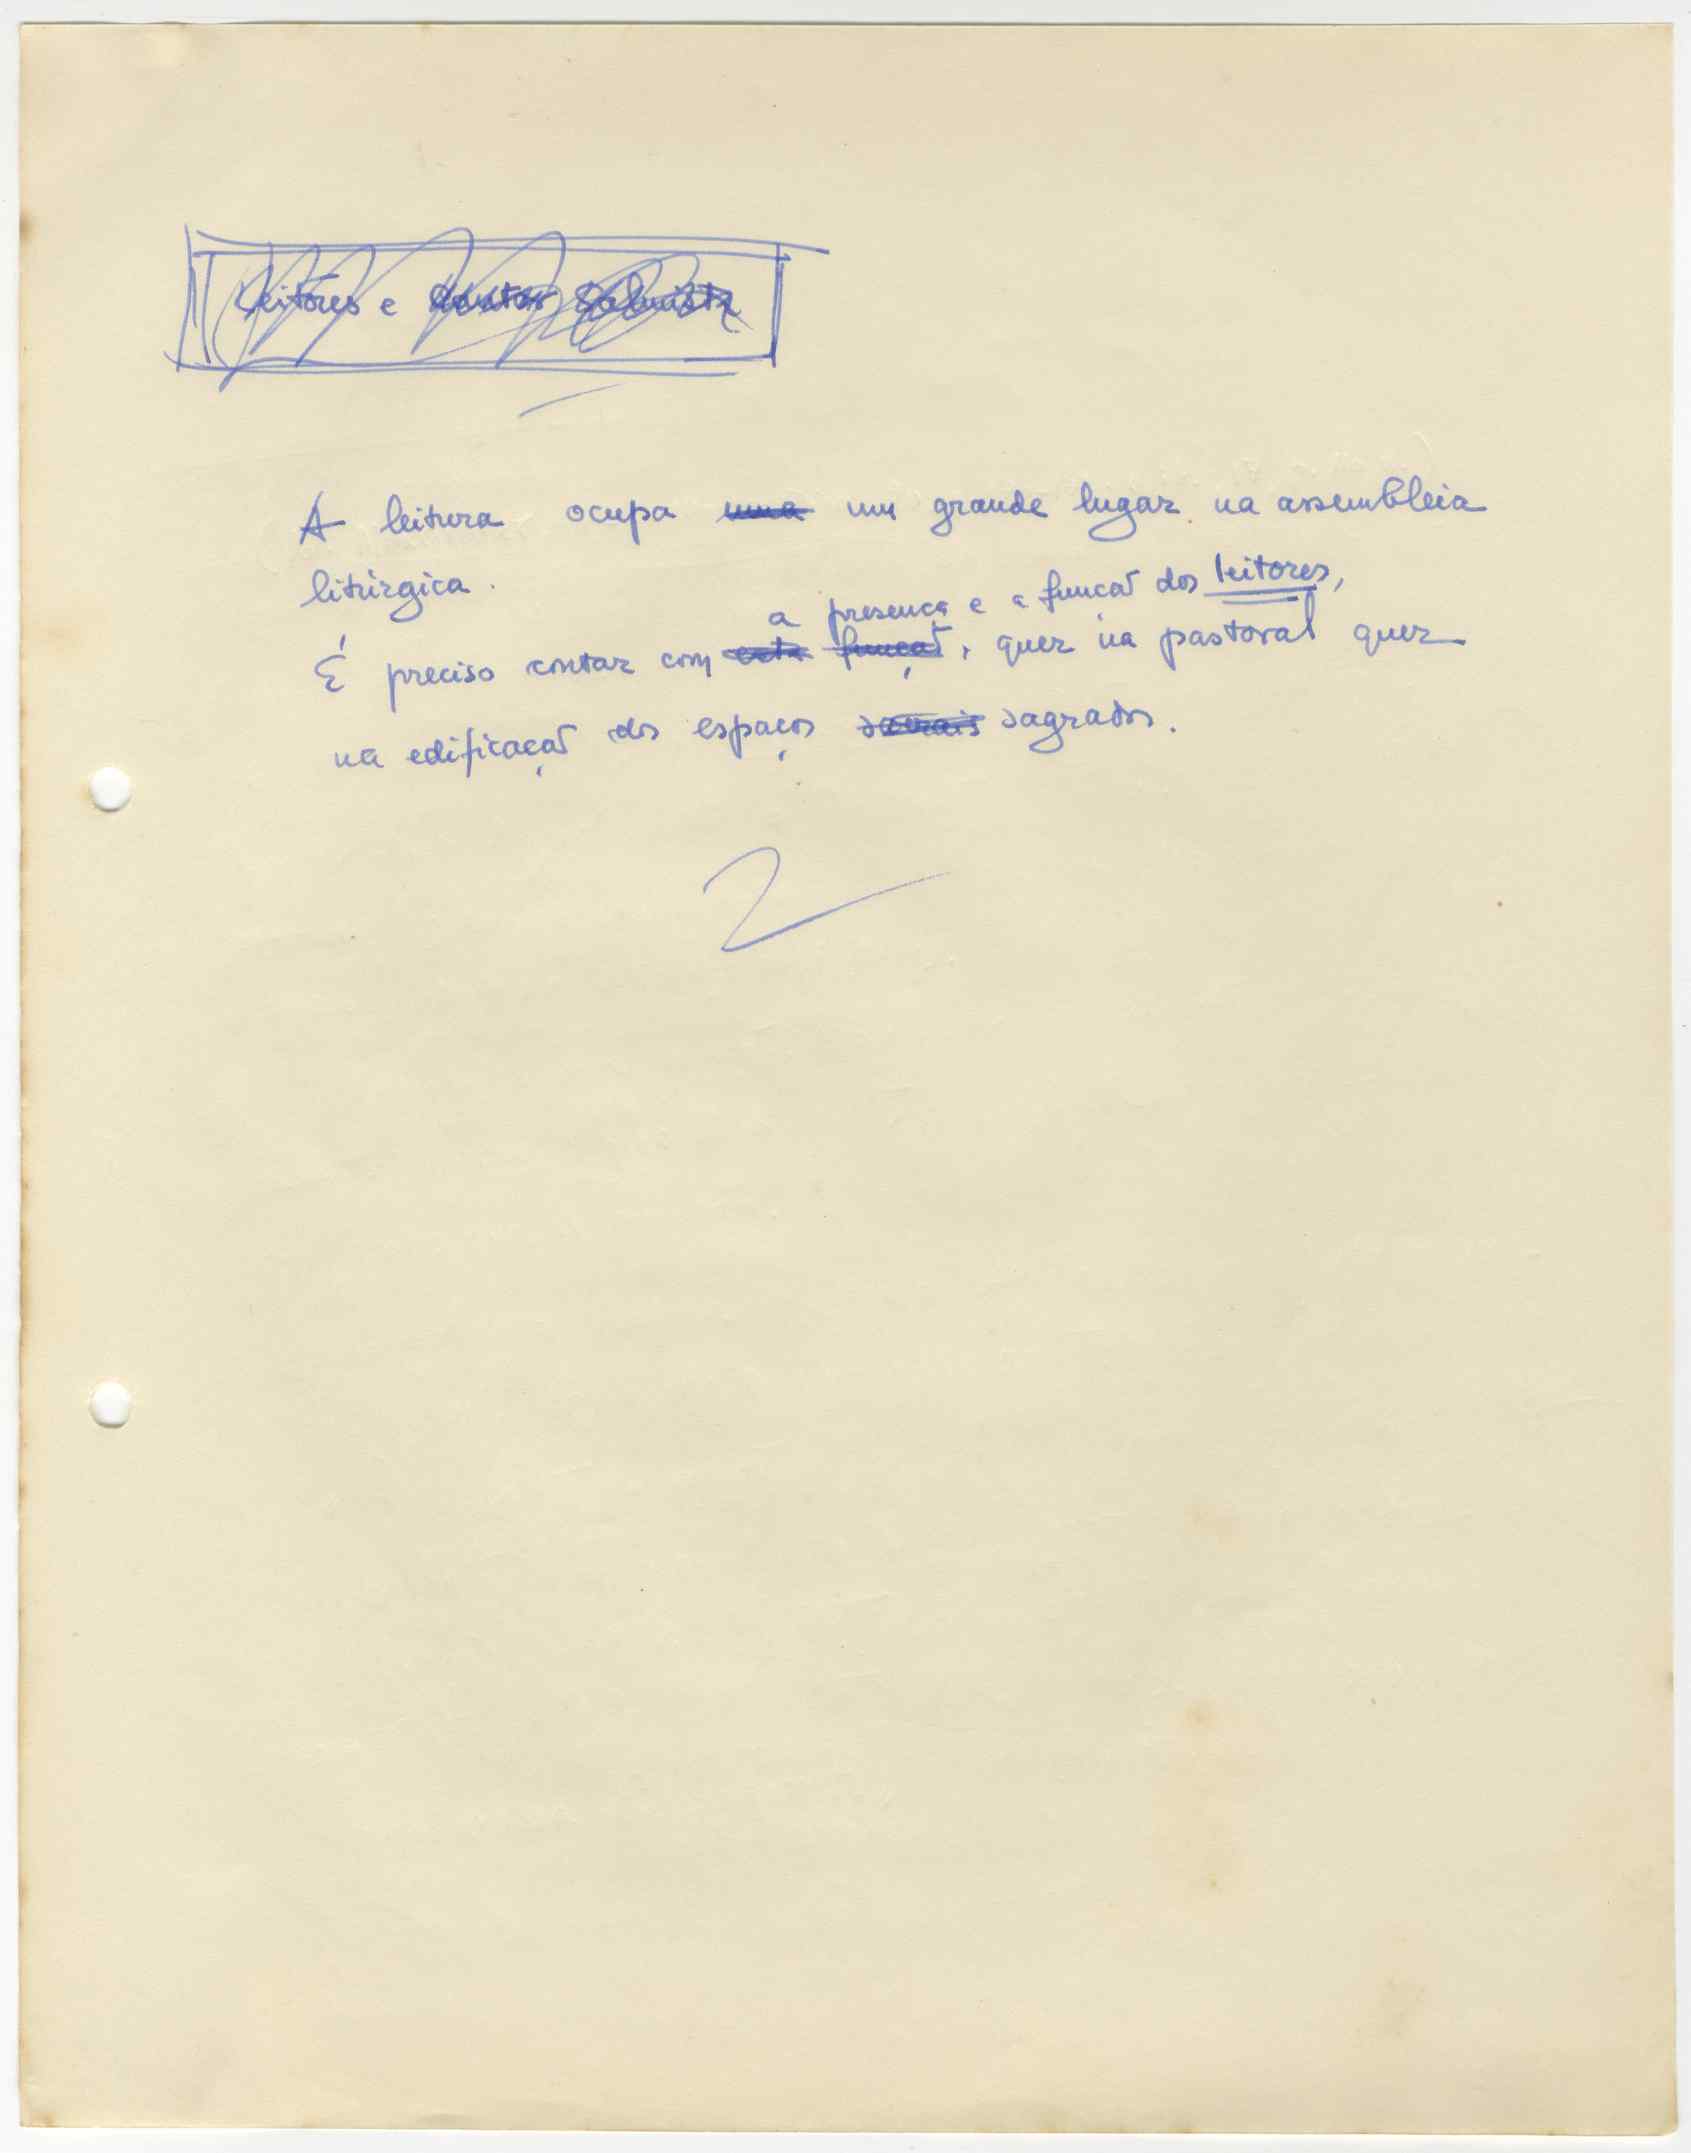 Leitores e Cantor Salmista
A leitura ocupa uma um grande lugar na assembleia
litúrgica.
a presença e a funcão dos leitores,
É preciso contar com esta função, quer na pastoral quer
na edificação dos espaços sagrados.